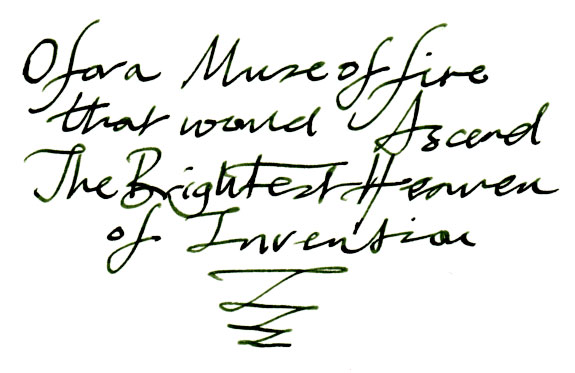 O for a Muse of fire
that would Ascend
The Brightest Heaven
of Invention